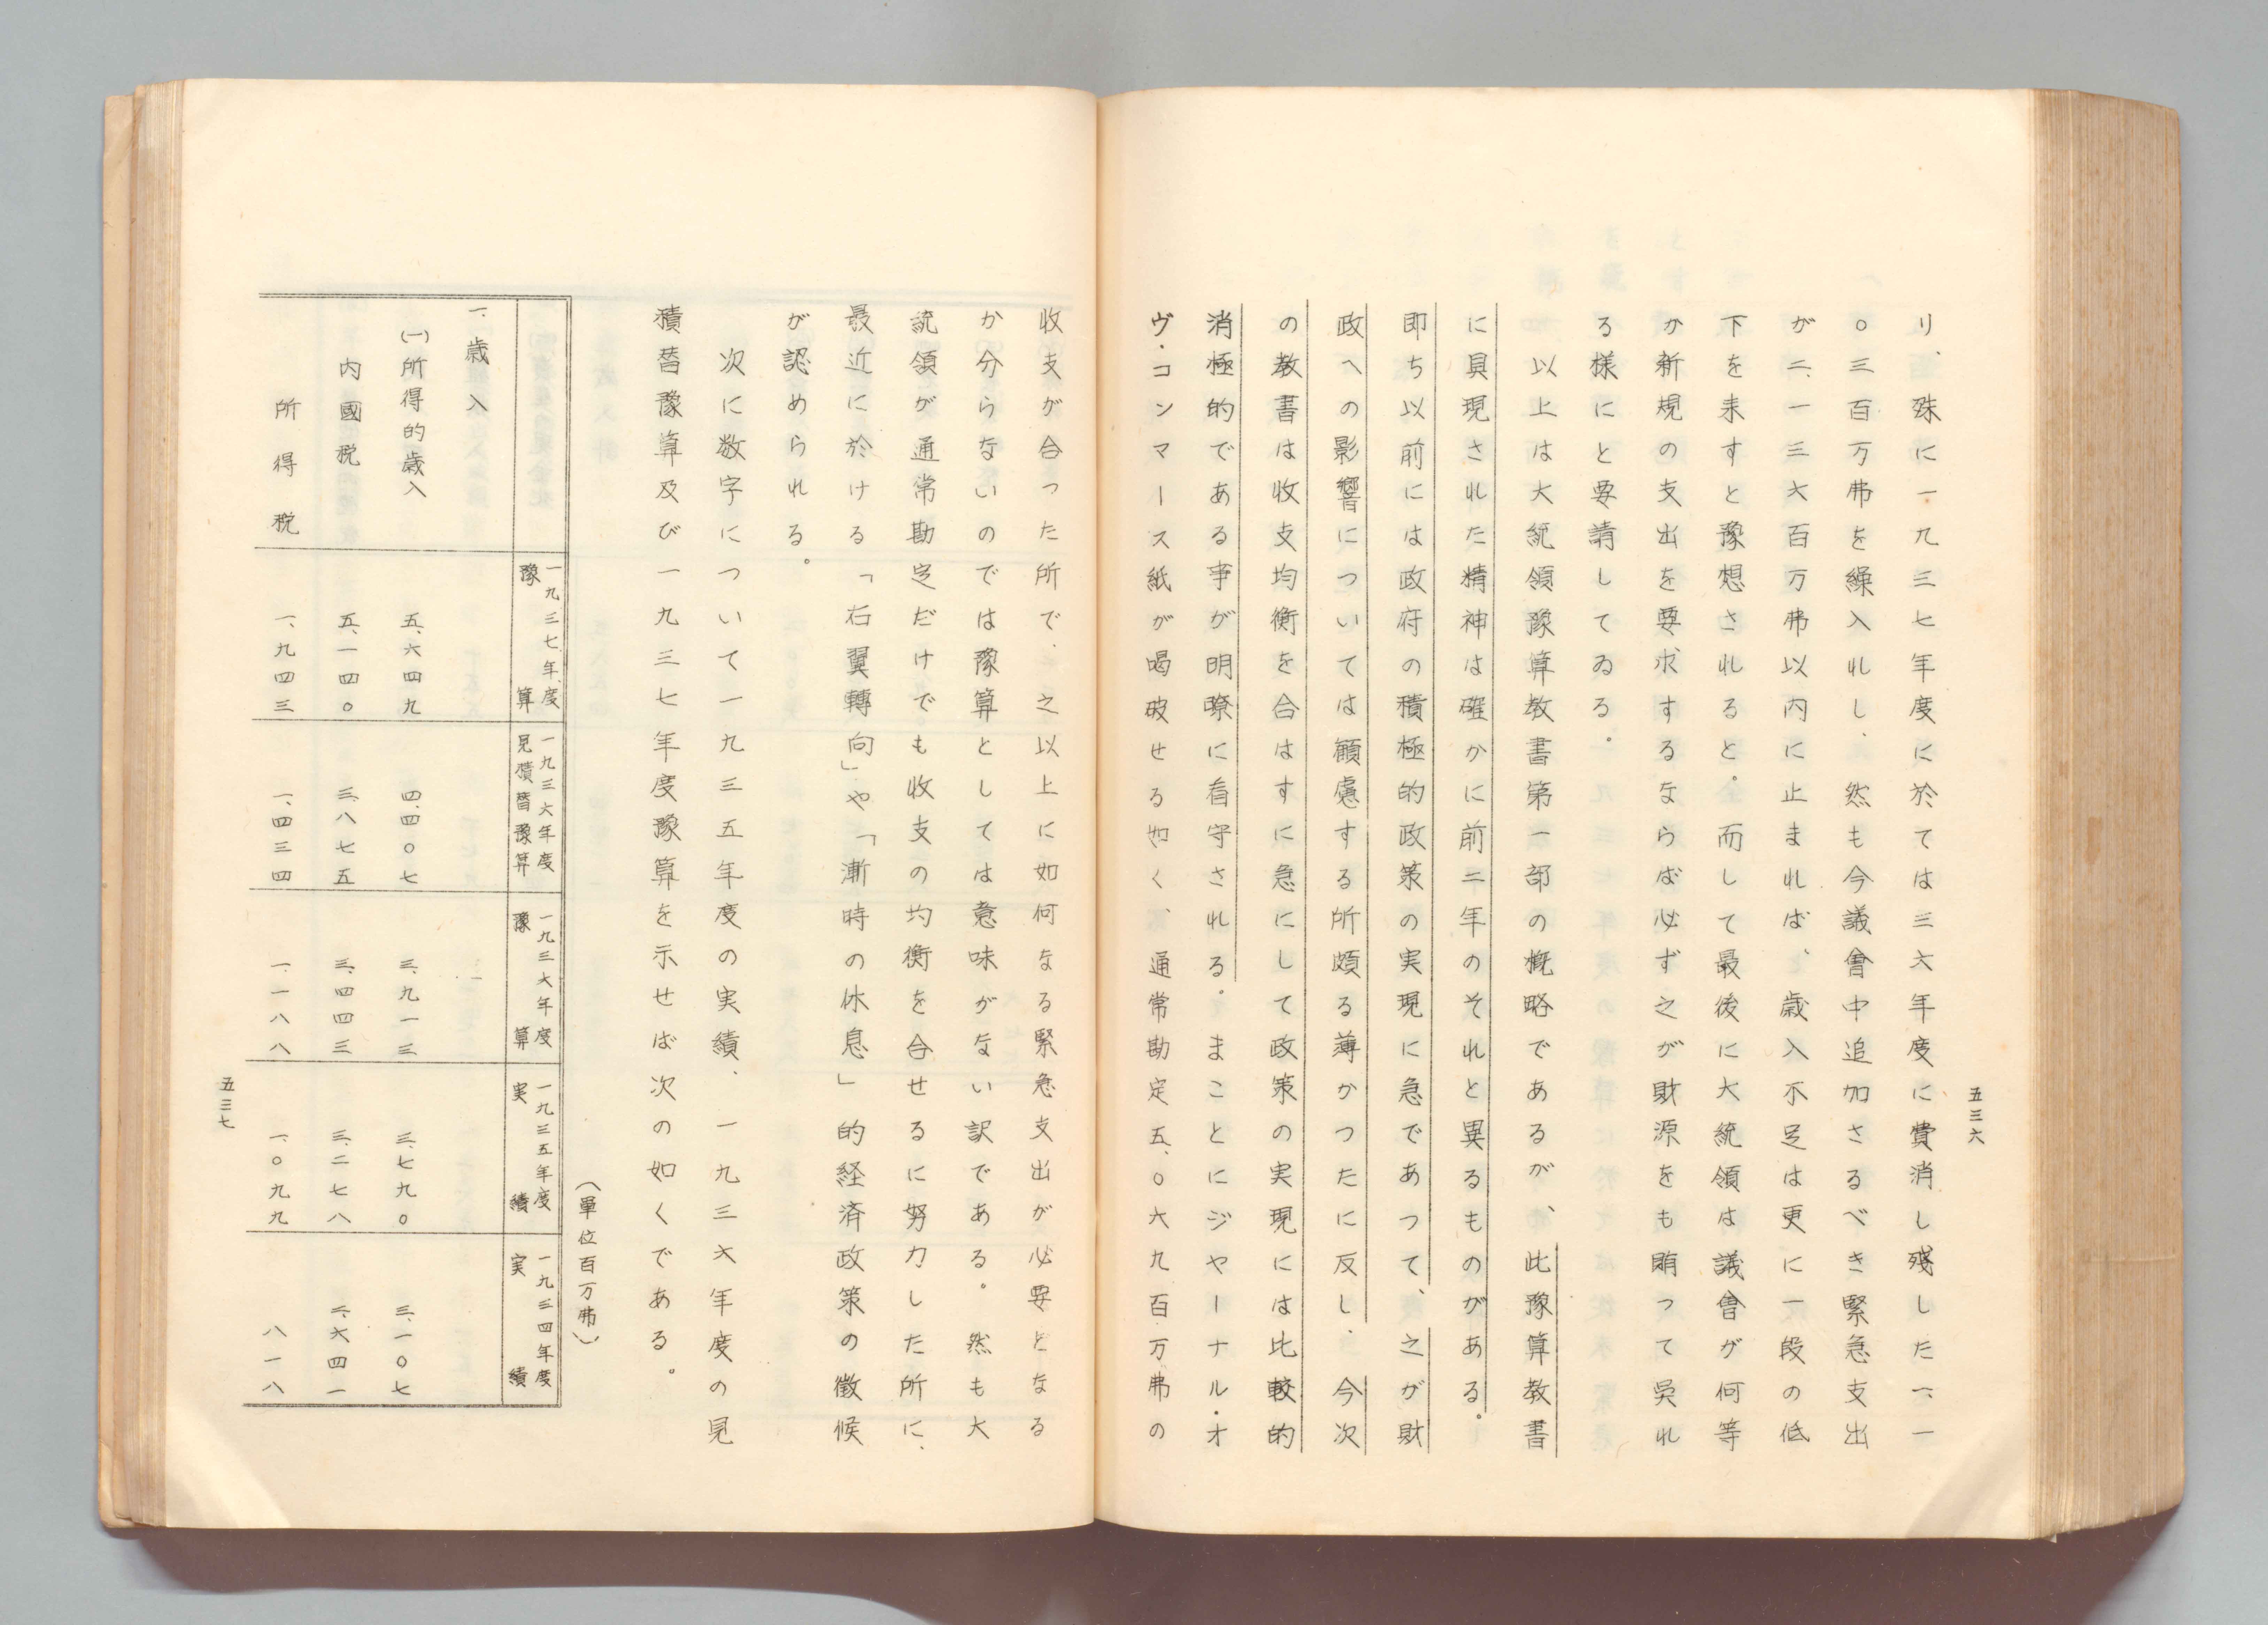 五三六
り、殊に一九三七年度に於ては三六年度に費消し残した一、一
〇三百万弗を繰入れし、然も今議會中追加さるべき緊急支出
が二、一三六百万弗以内に止まれば、歳入不足は更に一段の低
下を来すと豫想されると。而して最後に大統領は議會が何等
か新規の支出を要求するならば必ず之が財源をも賄って呉れ
る様にと要請してゐる。
以上は大統領豫算教書第一部の概略であるが、此豫算教書
に具現された精神は確かに前二年のそれと異るものがある。
即ち以前には政府の積極的政策の実現に急であつて、之が財
政への影響については顧慮する所頗る薄かつたに反し、今次
の教書は收支均衡を合はすに急にして政策の実現には比較的
消極的である事が明瞭に看守される。まことにジャーナル・オ
ヴ・コンマース紙が喝破せる如く、通常勘定五、〇六九百万弗の
收支が合った所で、之以上に如何なる緊急支出が必要となる
か分らないのでは豫算としては意味がない訳である。然も大
統領が通常勘定だけでも收支の均衡を合せるに努力した所に、
最近に於ける「右翼轉向」や「漸時の休息」的経済政策の徴候
が認められる。
次に数字について一九三五年度の実績、一九三六年度の見
積替豫算及び一九三七年度豫算を示せば次の如くである。
（單位百万弗）
一九三七年度豫算 一九三六年度見積替豫算 一九三六年度豫算 一九三五年度実績 一九三四年度実績
一、歳入
㈠所得的歳入 五、六四九 四、四〇七 三、九一三 三、七九〇 三、一〇七
内國税 五、一四〇 三、八七五 三、四四三 三、二七八 二、六四一
所得税 一、九四三 一、四三四 一、一八八 一、〇九九 八一八
五三七